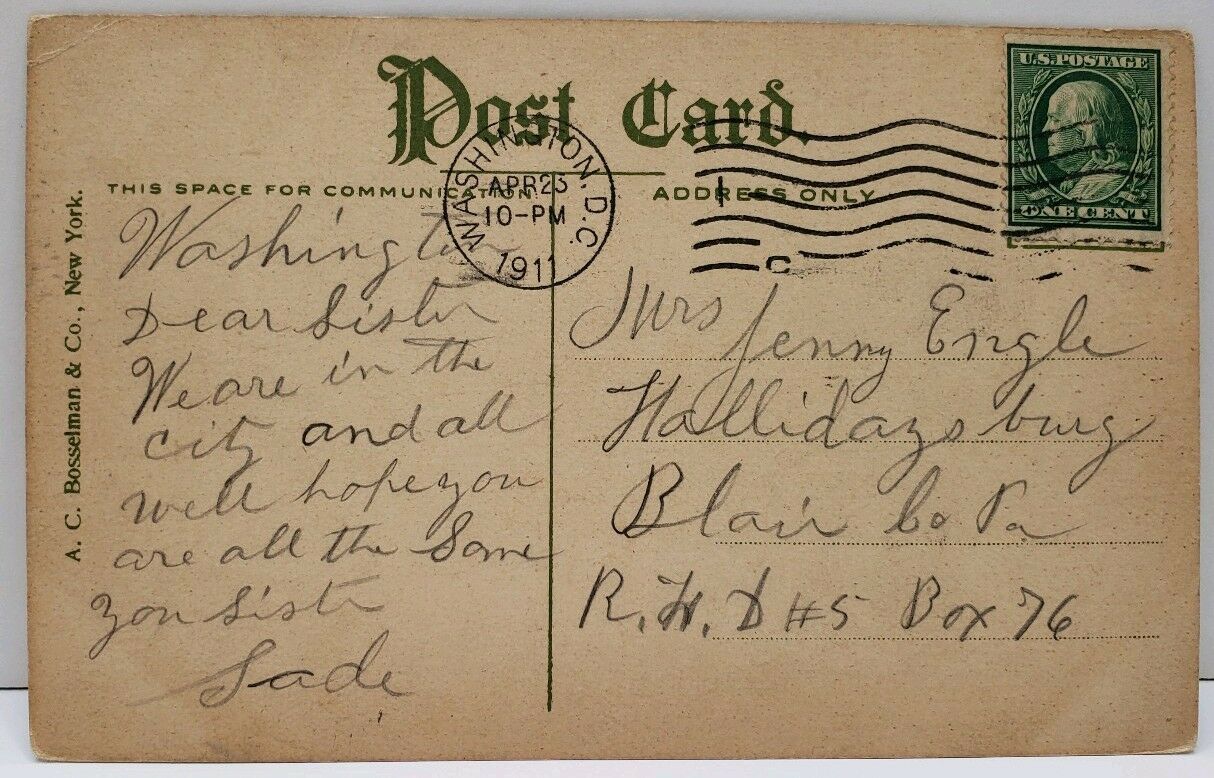 Post Card.
U.S. POSTAGE
ONE CENT
WASHINGTON, D.C.
APR 23
10-PM
1911
C
THIS SPACE FOR COMMUNICATION.
ADDRESS ONLY
A. C. Bosselman & Co., New York.
Washington
Dear Sister
We are in the
city and all
well hope you
are all the Same
you Sister
Sade
Mrs Jenny Engle
Hallidaysburg
Blair Co Pa
R. F. D #5 Box 76